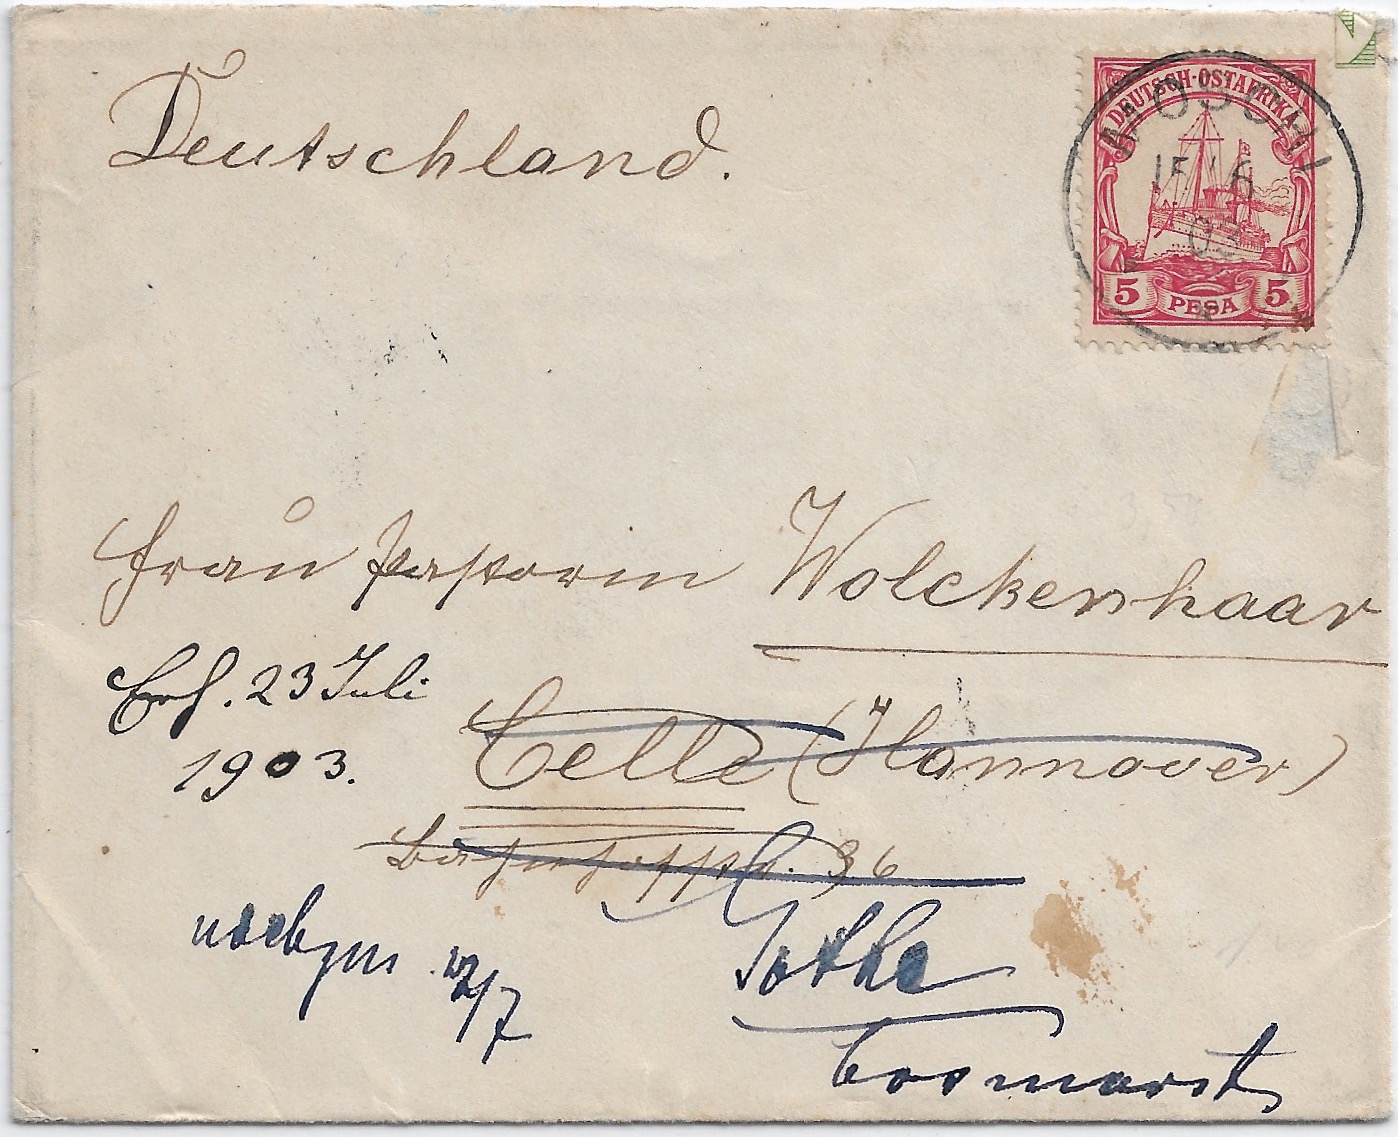 Deutschland.
DEUTSCH-OSTAFRIKA
MOSCHI
15/6
03
5 PESA 5
Frau Pastorin Wolckenhaar
Erh. 23 Juli
1903.
Celle (Hannover)
Bahnhofstr. 36
Gotha
22/7